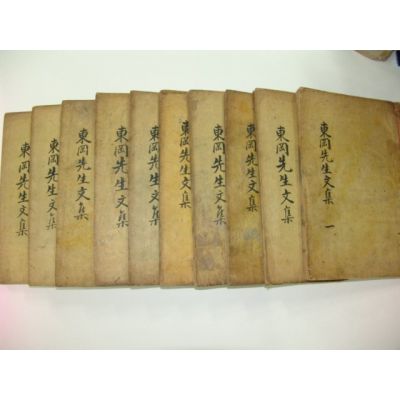 東岡先生文集 一
東岡先生文集
東岡先生文集
東岡先生文集
東岡先生文集
東岡先生文集
東岡先生文集
東岡先生文集
東岡先生文集
東岡先生文集